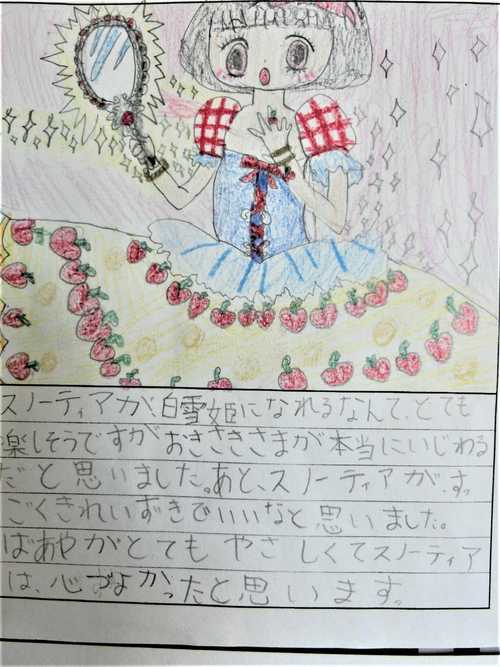 スノーティアが、白雪姫になれるなんて、とても
楽しそうですがおきさきさまが本当にいじわる
だと思いました。あと、スノーティアが、すっ
ごくきれいずきでいいなと思いました。
ばあやがとてもやさしくてスノーティア
は、心づよかったと思います。